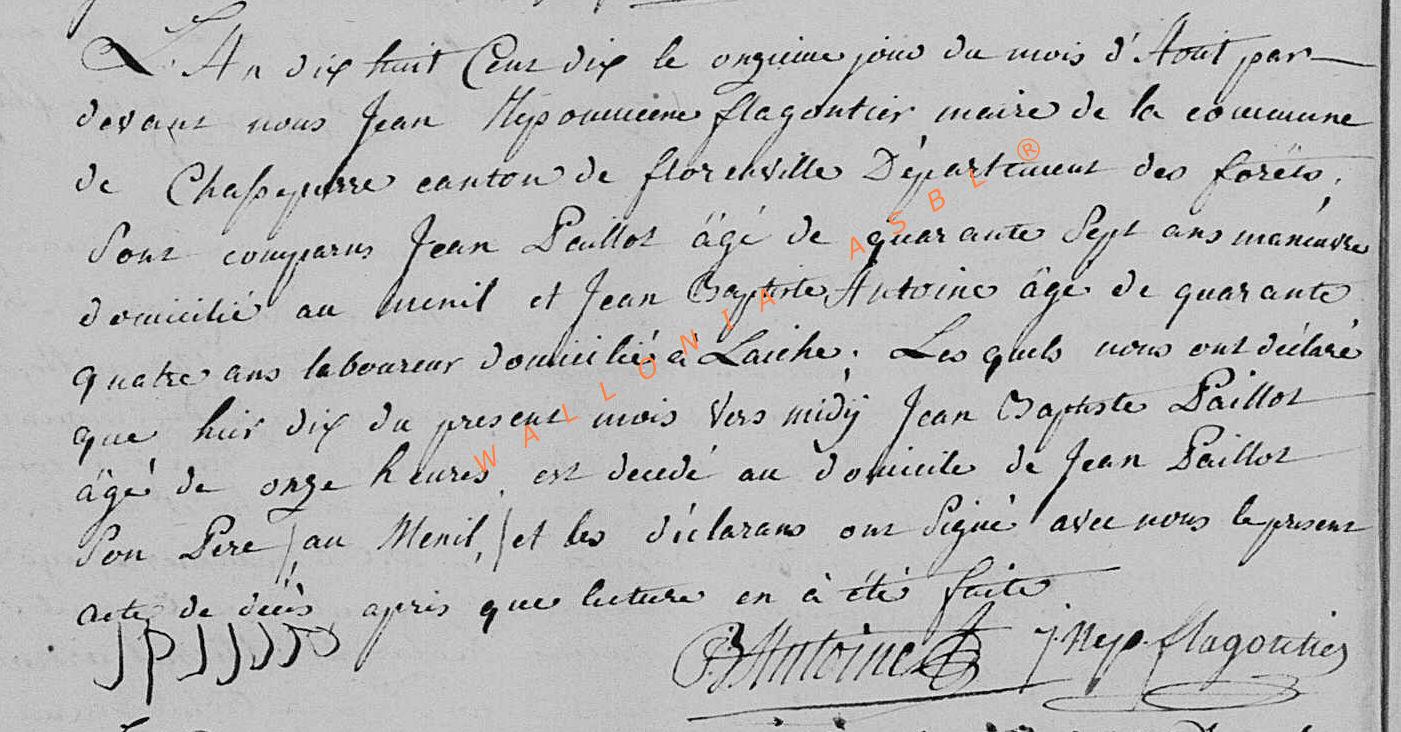 L'An dix huit Cent dix le onzieme jour du mois d'Aout par-
devant nous Jean Nepomucene flagontier maire de la commune
de Chassepierre canton de florenville Département des forêts,
Sont comparus Jean Paillot âgé de quarante Sept ans manœuvre
domicilié au menil et Jean Baptiste Antoine âgé de quarante
quatre ans laboureur domicilié à Laiche. Les quels nous ont déclaré
que hier dix du present mois Vers midÿ Jean Baptiste Paillot
âgé de onze heures, est decedé au domicile de Jean Paillot
Son Pere (au Menil,) et les déclarans ont Signé avec nous le present
acte de décès après que lecture en à été faite
JBAntoine J. Nep. flagontier
WALLONIA ASBL ®